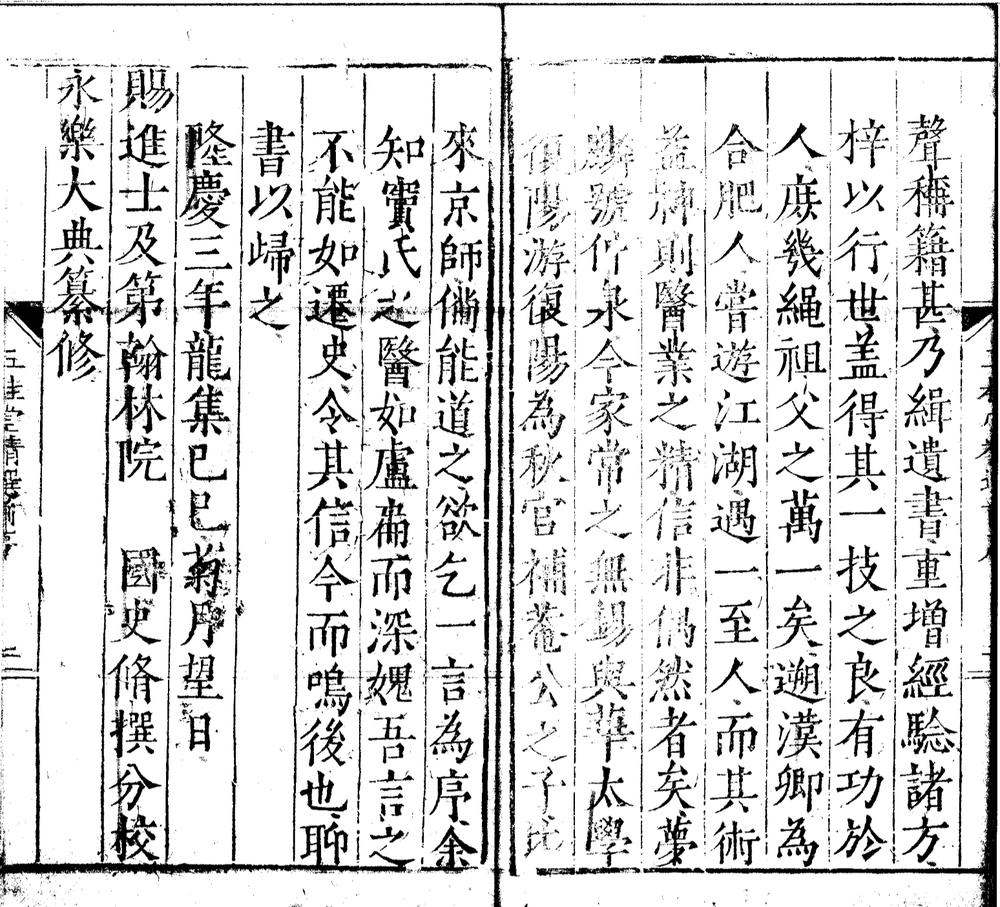 聲稱籍甚乃緝遺書重增經驗諸方
梓以行世盖得其一技之良有功於
人庶幾繩祖父之萬一矣遡漢卿為
合肥人嘗遊江湖遇一至人而其術
益神則醫業之精信非偶然者矣夢
麟號竹泉今家常之無錫與華太學
復陽游復陽為秋官補菴公之子
來京師備能道之欲乞一言為序余
知竇氏之醫如盧扁而深媿吾言之
不能如遷史令其信今而鳴後也聊
書以歸之
隆慶三年龍集己巳菊月望日
賜進士及第翰林院 國史脩撰分校
永樂大典纂修